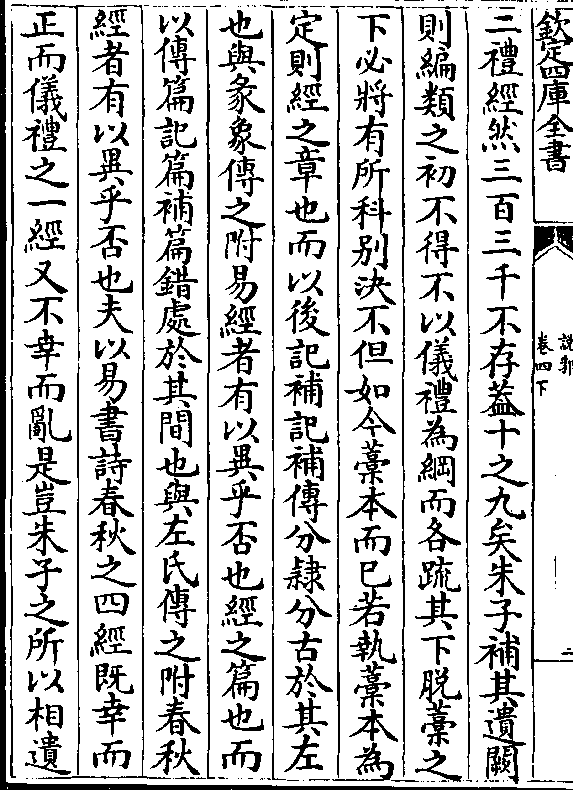 欽定四庫全書
說郛
卷四下
二
二禮經然三百三千不存葢十之九矣朱子補其遺闕
則編類之初不得不以儀禮為綱而各疏其下脫藁之
下必將有所科别決不但如今藁本而已若執藁本為
定則經之章也而以後記補記補傳分隷分古於其左
也與彖象傳之附易經者有以異乎否也經之篇也而
以傳篇記篇補篇錯處於其間也與左氏傳之附春秋
經者有以異乎否也夫以易書詩春秋之四經既幸而
正而儀禮之一經又不幸而亂是豈朱子之所以相遺